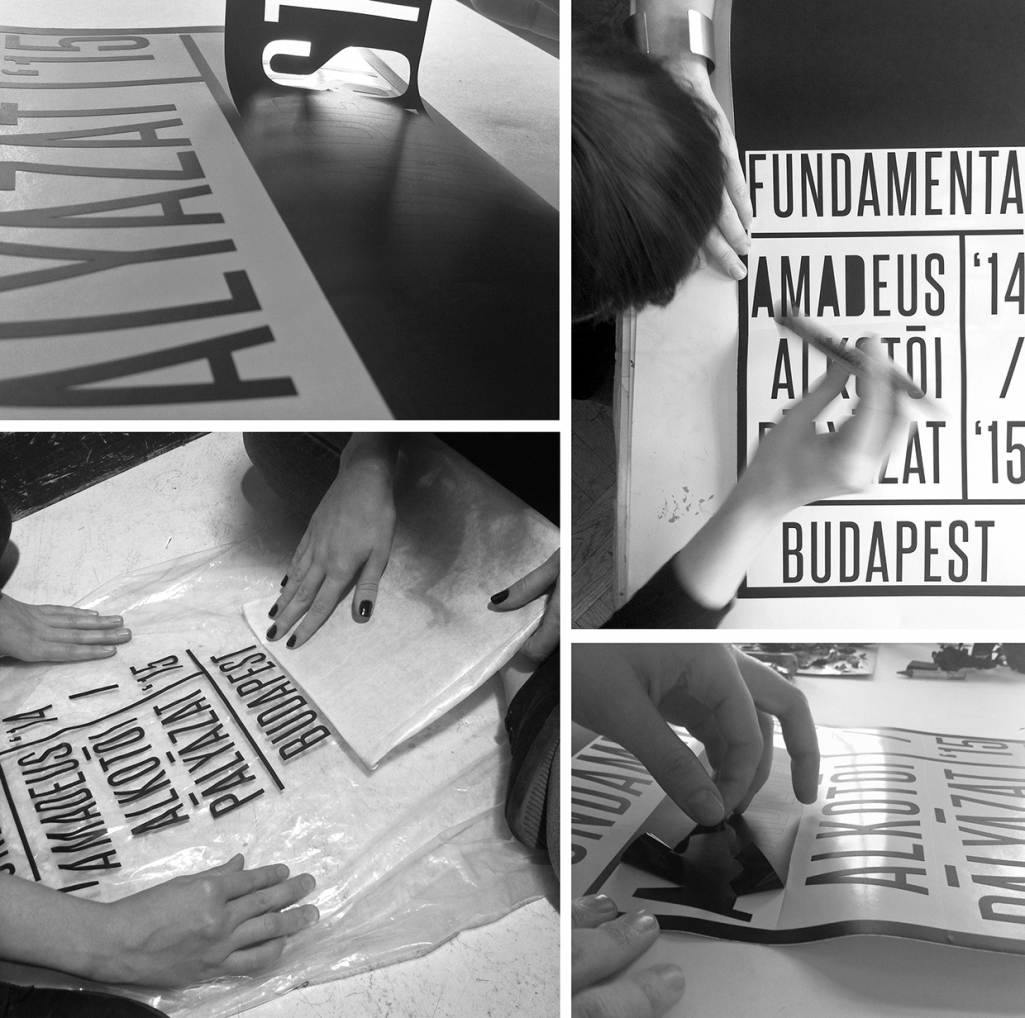 ST
ALYĀZAT '15
FUNDAMENTA
AMADEUS '14
ALKOTŌI /
ZAT '15
BUDAPEST
AMADEUS '14
ALKOTŌI /
PĀLYĀZAT '15
BUDAPEST
UNDAM
ALKOTŌI /
PĀLYĀZAT '15